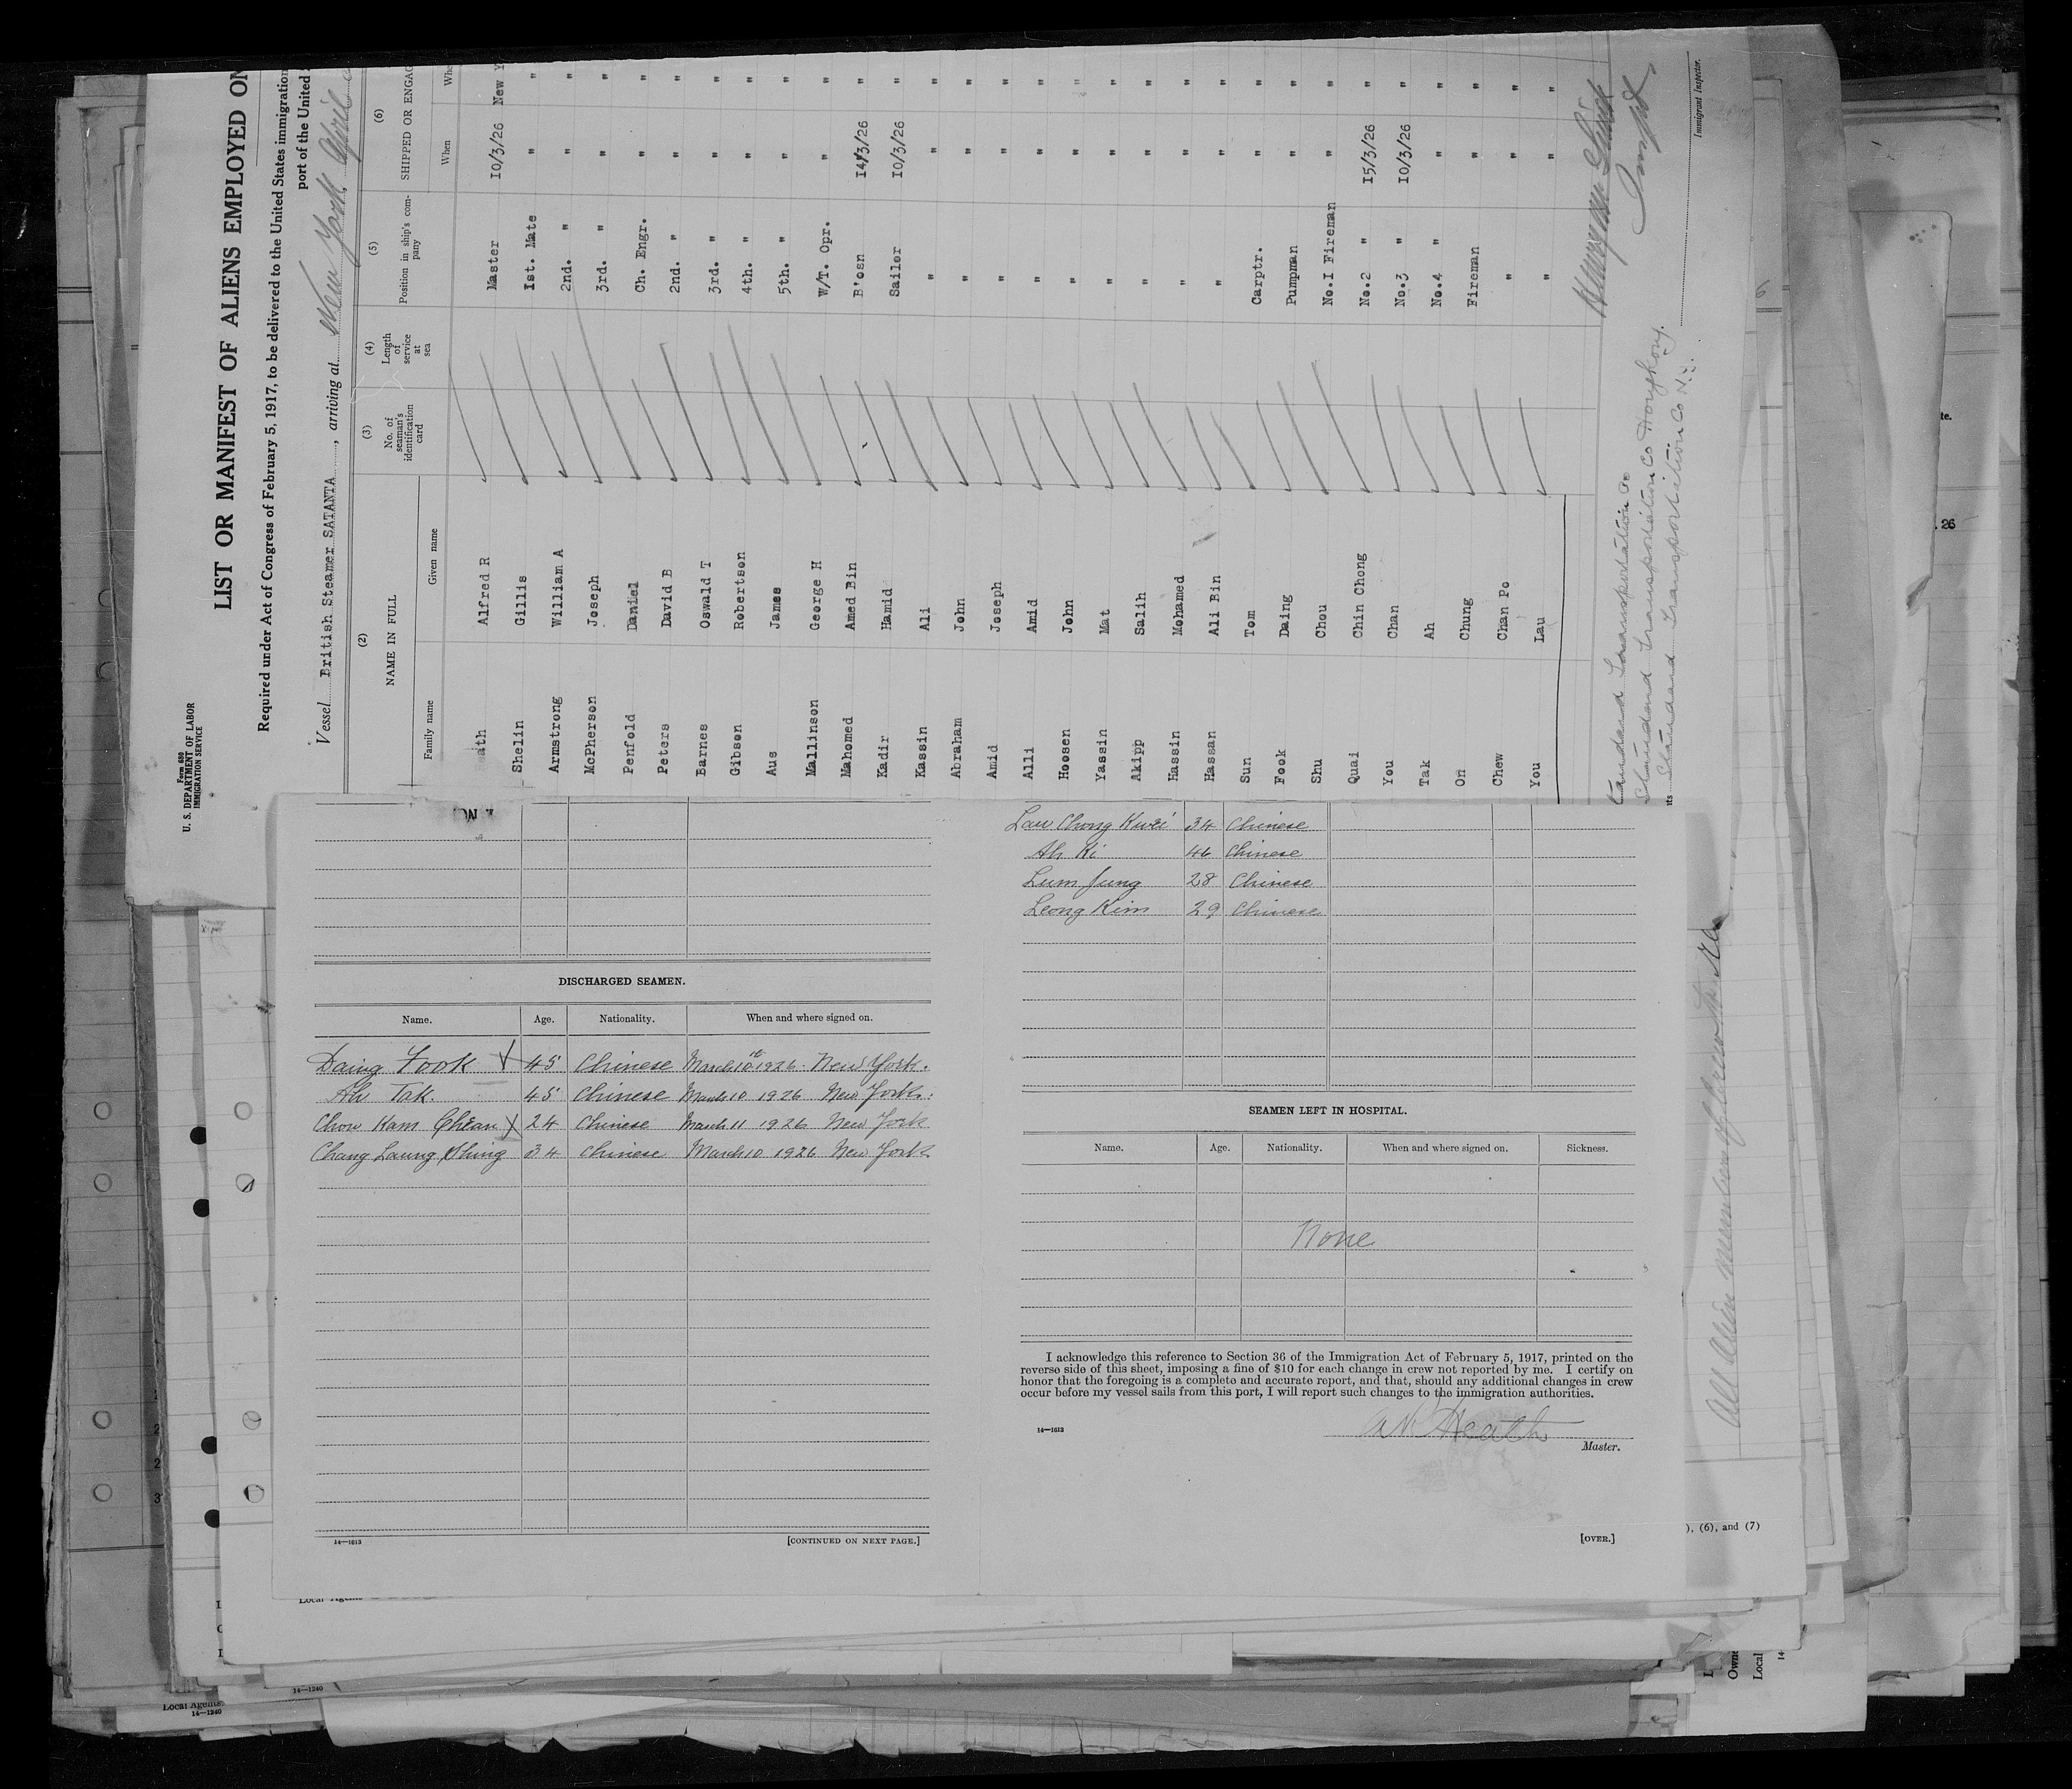 Form 680
U. S. DEPARTMENT OF LABOR
IMMIGRATION SERVICE
LIST OR MANIFEST OF ALIENS EMPLOYED ON
Required under Act of Congress of February 5, 1917, to be delivered to the United States immigration
port of the United
Vessel British Steamer SATANTA, arriving at New York April
(2) (3) (4) (5) (6)
NAME IN FULL No. of seaman's identification card Length of service at sea Position in ship's company SHIPPED OR ENGAG
Family name Given name When Whe
ath Alfred R Master 10/3/26 New Y
Shelin Gillis 1st. Mate " "
Armstrong William A 2nd. " " "
McPherson Joseph 3rd. " " "
Penfold Daniel Ch. Engr. " "
Peters David B 2nd. " " "
Barnes Oswald T 3rd. " " "
Gibson Robertson 4th. " " "
Aus James 5th. " " "
Mallinson George H W/T. Opr. " "
Mahomed Amed Bin B'osn 14/3/26 "
Kadir Hamid Sailor 10/3/26 "
Kassin Ali " " "
Abraham John " " "
Amid Joseph " " "
Alli Amid " " "
Hoosen John " " "
Yassin Mat " " "
Akipp Salih " " "
Hassin Mohamed " " "
Hassan Ali Bin " " "
Sun Tom Carptr. " "
Fook Daing Pumpman " "
Shu Chou No.1 Fireman " "
Quai Chin Chong No.2 " 15/3/26 "
You Chan No.3 " 10/3/26 "
Tak Ah No.4 " " "
On Chung Fireman " "
Chew Chan Po " " "
You Lau " " "
Standard Transportation Co
Standard Transportation Co Hongkong.
Standard Transportation Co N.Y.
Immigrant Inspector.
DISCHARGED SEAMEN.
Name. Age. Nationality. When and where signed on.
Daing Fook 45 Chinese March 10th 1926. New York.
Ah Tak. 45 Chinese March 10 1926 New York.
Chow Kam Chean 24 Chinese March 11 1926 New York
Chang Laung Shing 34 Chinese March 10 1926 New York
14—1613
[CONTINUED ON NEXT PAGE.]
Lau Chong Kwei 34 Chinese
Ah Ki 46 Chinese
Lum Jung 28 Chinese
Leong Kim 29 Chinese
SEAMEN LEFT IN HOSPITAL.
Name. Age. Nationality. When and where signed on. Sickness.
None
I acknowledge this reference to Section 36 of the Immigration Act of February 5, 1917, printed on the
reverse side of this sheet, imposing a fine of $10 for each change in crew not reported by me. I certify on
honor that the foregoing is a complete and accurate report, and that, should any additional changes in crew
occur before my vessel sails from this port, I will report such changes to the immigration authorities.
14—1613
Heath
Master.
[OVER.]
All alien members of crew
te.
. 26
), (6), and (7)
Local Agents
14—1240
14—1240
Owne
Local
14